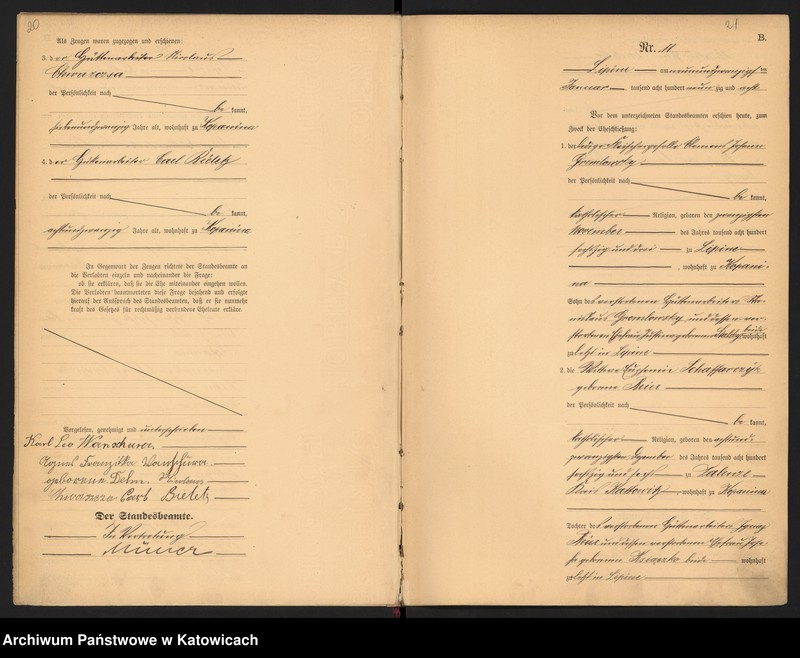 20
Als Zeugen waren zugezogen und erschienen:
3. der Hüttenarbeiter Nicolaus
der Persönlichkeit nach
be kannt,
siebenundzwanzig Jahre alt, wohnhaft zu Kopanina
4. der Hüttenarbeiter Carl Bieletz
der Persönlichkeit nach
be kannt,
achtundzwanzig Jahre alt, wohnhaft zu Kopanina
In Gegenwart der Zeugen richtete der Standesbeamte an
die Verlobten einzeln und nacheinander die Frage:
ob sie erklären, daß sie die Ehe miteinander eingehen wollen.
Die Verlobten beantworteten diese Frage bejahend und erfolgte
hierauf der Ausspruch des Standesbeamten, daß er sie nunmehr
kraft des Gesetzes für rechtmäßig verbundene Eheleute erkläre.
Vorgelesen, genehmigt und unterschrieben
Karl Leo
Agnes Franziska
geborene
Carl Bieletz
Der Standesbeamte.
In Vertretung
21
B.
Nr. 11
Lipine am neunundzwanzigsten
Januar tausend acht hundert neun zig und acht
Vor dem unterzeichneten Standesbeamten erschien heute, zum
Zweck der Eheschließung:
1. der Clemens Johann
Gremlowsky
der Persönlichkeit nach
be kannt,
katholischer Religion, geboren den zwanzigsten
November des Jahres tausend acht hundert
sechzig und drei zu Lipine
, wohnhaft zu Kopani-
na
Sohn des verstorbenen Hüttenarbeiters
Gremlowsky und dessen ver-
storbenen Ehefrau geborenen beide wohnhaft
zuletzt in Lipine
2. die Wittwe Eugenie Schaffarczyk
geborene
der Persönlichkeit nach
be kannt,
katholischer Religion, geboren den achtund-
zwanzigsten Dezember des Jahres tausend acht hundert
sechzig und sechs zu Zalenze
Kreis Kattowitz, wohnhaft zu Kopanina
Tochter des verstorbenen Hüttenarbeiters
und dessen verstorbenen Ehefrau
geborenen beide wohnhaft
zuletzt in Lipine
Archiwum Państwowe w Katowicach